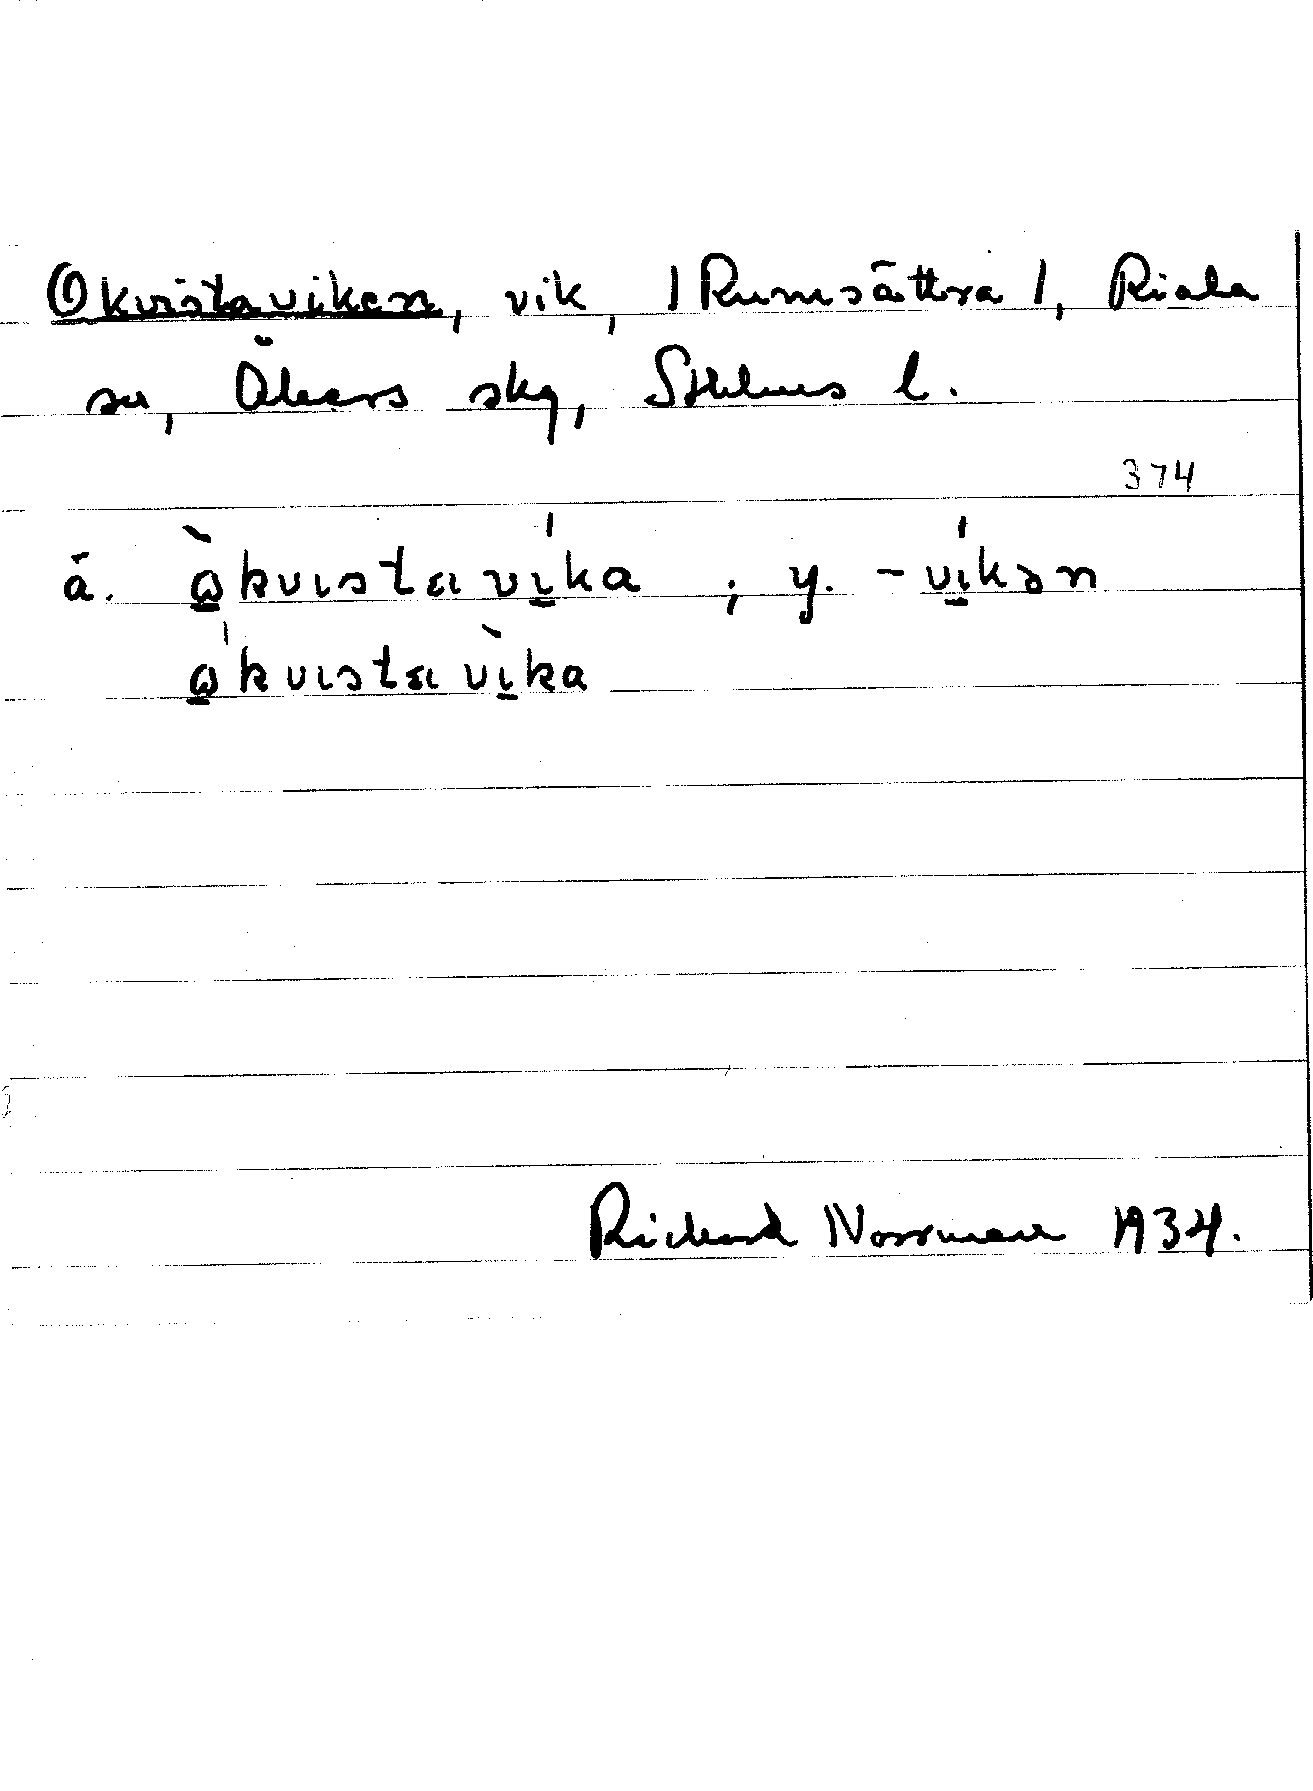 Okvistaviken, vik, /Rumsättra/, Riala
sn, Åkers skg, Sthlms l.
374
ä. ὼkvɩstaví̱ka ; y. -ví̱kən
ώkvɩstavì̱ka
Rickard Norrman 1934.